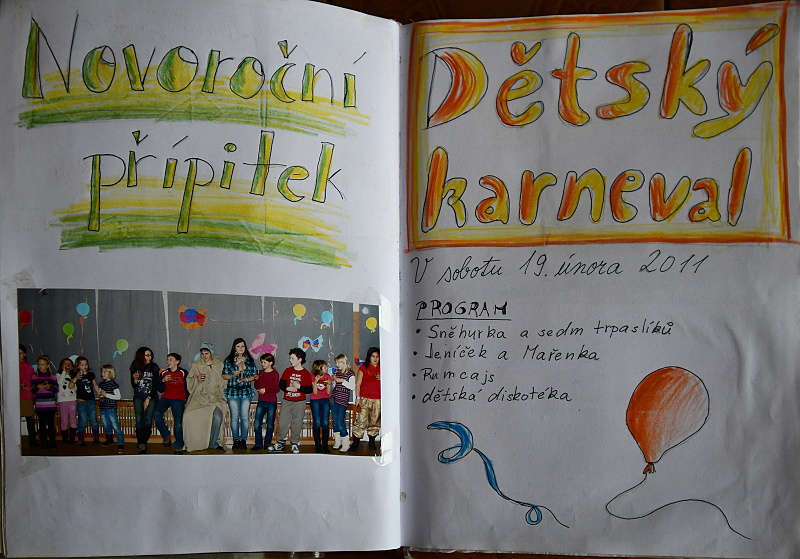 Novoroční
přípitek
Dětský
karneval
V sobotu 19. února 2011
PROGRAM
• Sněhurka a sedm trpaslíků
• Jeníček a Mařenka
• Rumcajs
• dětská diskotéka